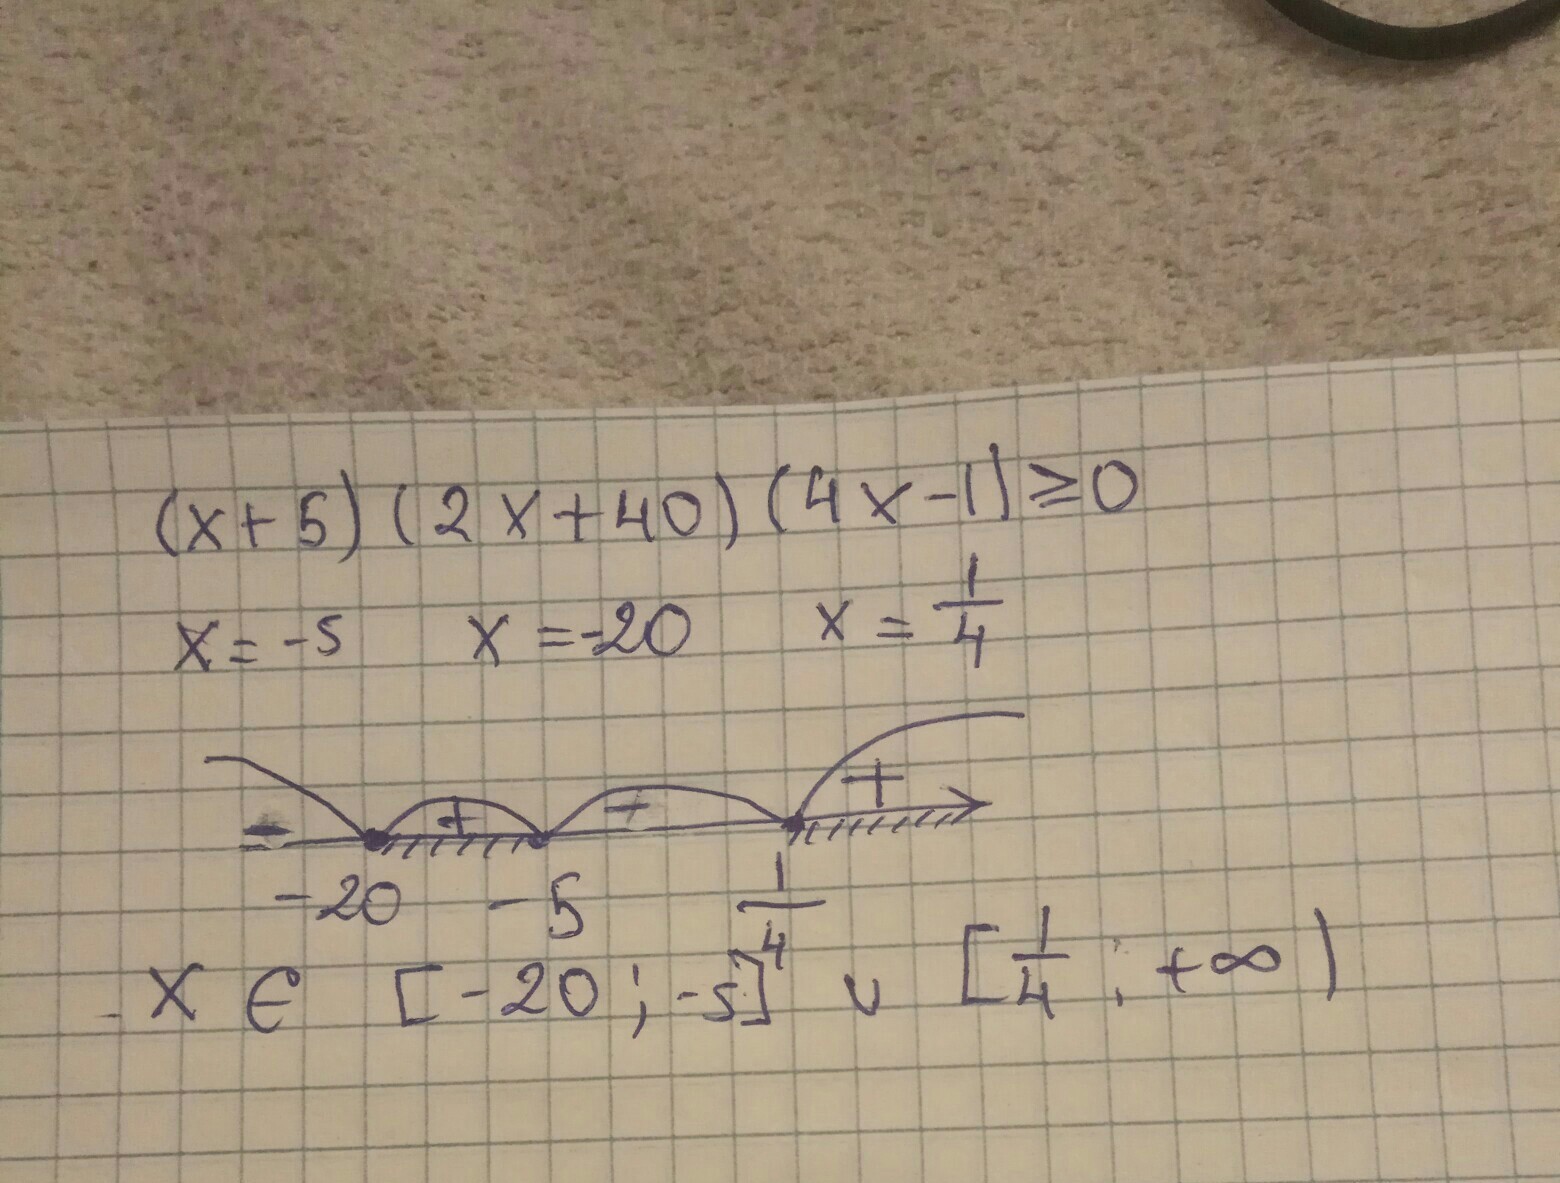 (x+5)(2x+40)(4x-1)≥0
x=-5 x=-20 x=1/4
- + - +
-20 -5 1/4
x ∈ [-20;-5] ∪ [1/4;+∞)